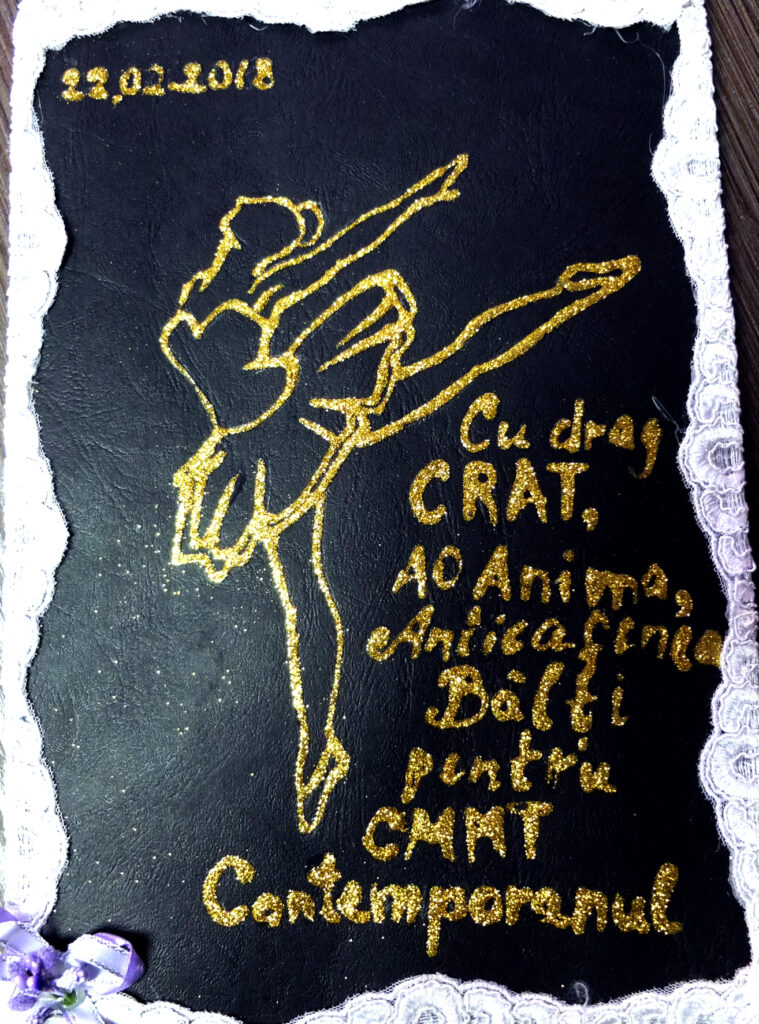 22.02.2018
Cu drag
CRAT,
AO Anima,
Anticafenea
Bălți
pentru
CMMT
Contemporanul